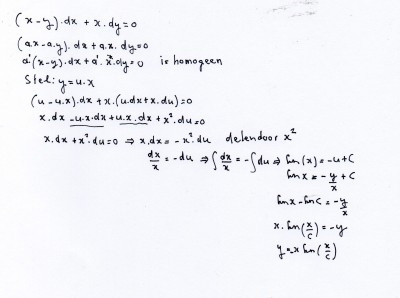 (x-y).dx + x.dy=0
(a.x-a.y).dx+a.x.dy=0
a²(x-y).dx+a².x.dy=0 is homogeen
Stel: y=u.x
(u-u.x).dx+x.(u.dx+x.du)=0
x.dx-u.x.dx+u.x.dx+x².du=0
x.dx+x².du=0 ⇒ x.dx=-x².du delen door x²
dx/x=-du ⇒ ∫dx/x=-∫du ⇒ ln(x)=-u+C
lnx=-y/x+C
lnx-lnC=-y/x
x.ln(x/C)=-y
y=-x ln(x/C)